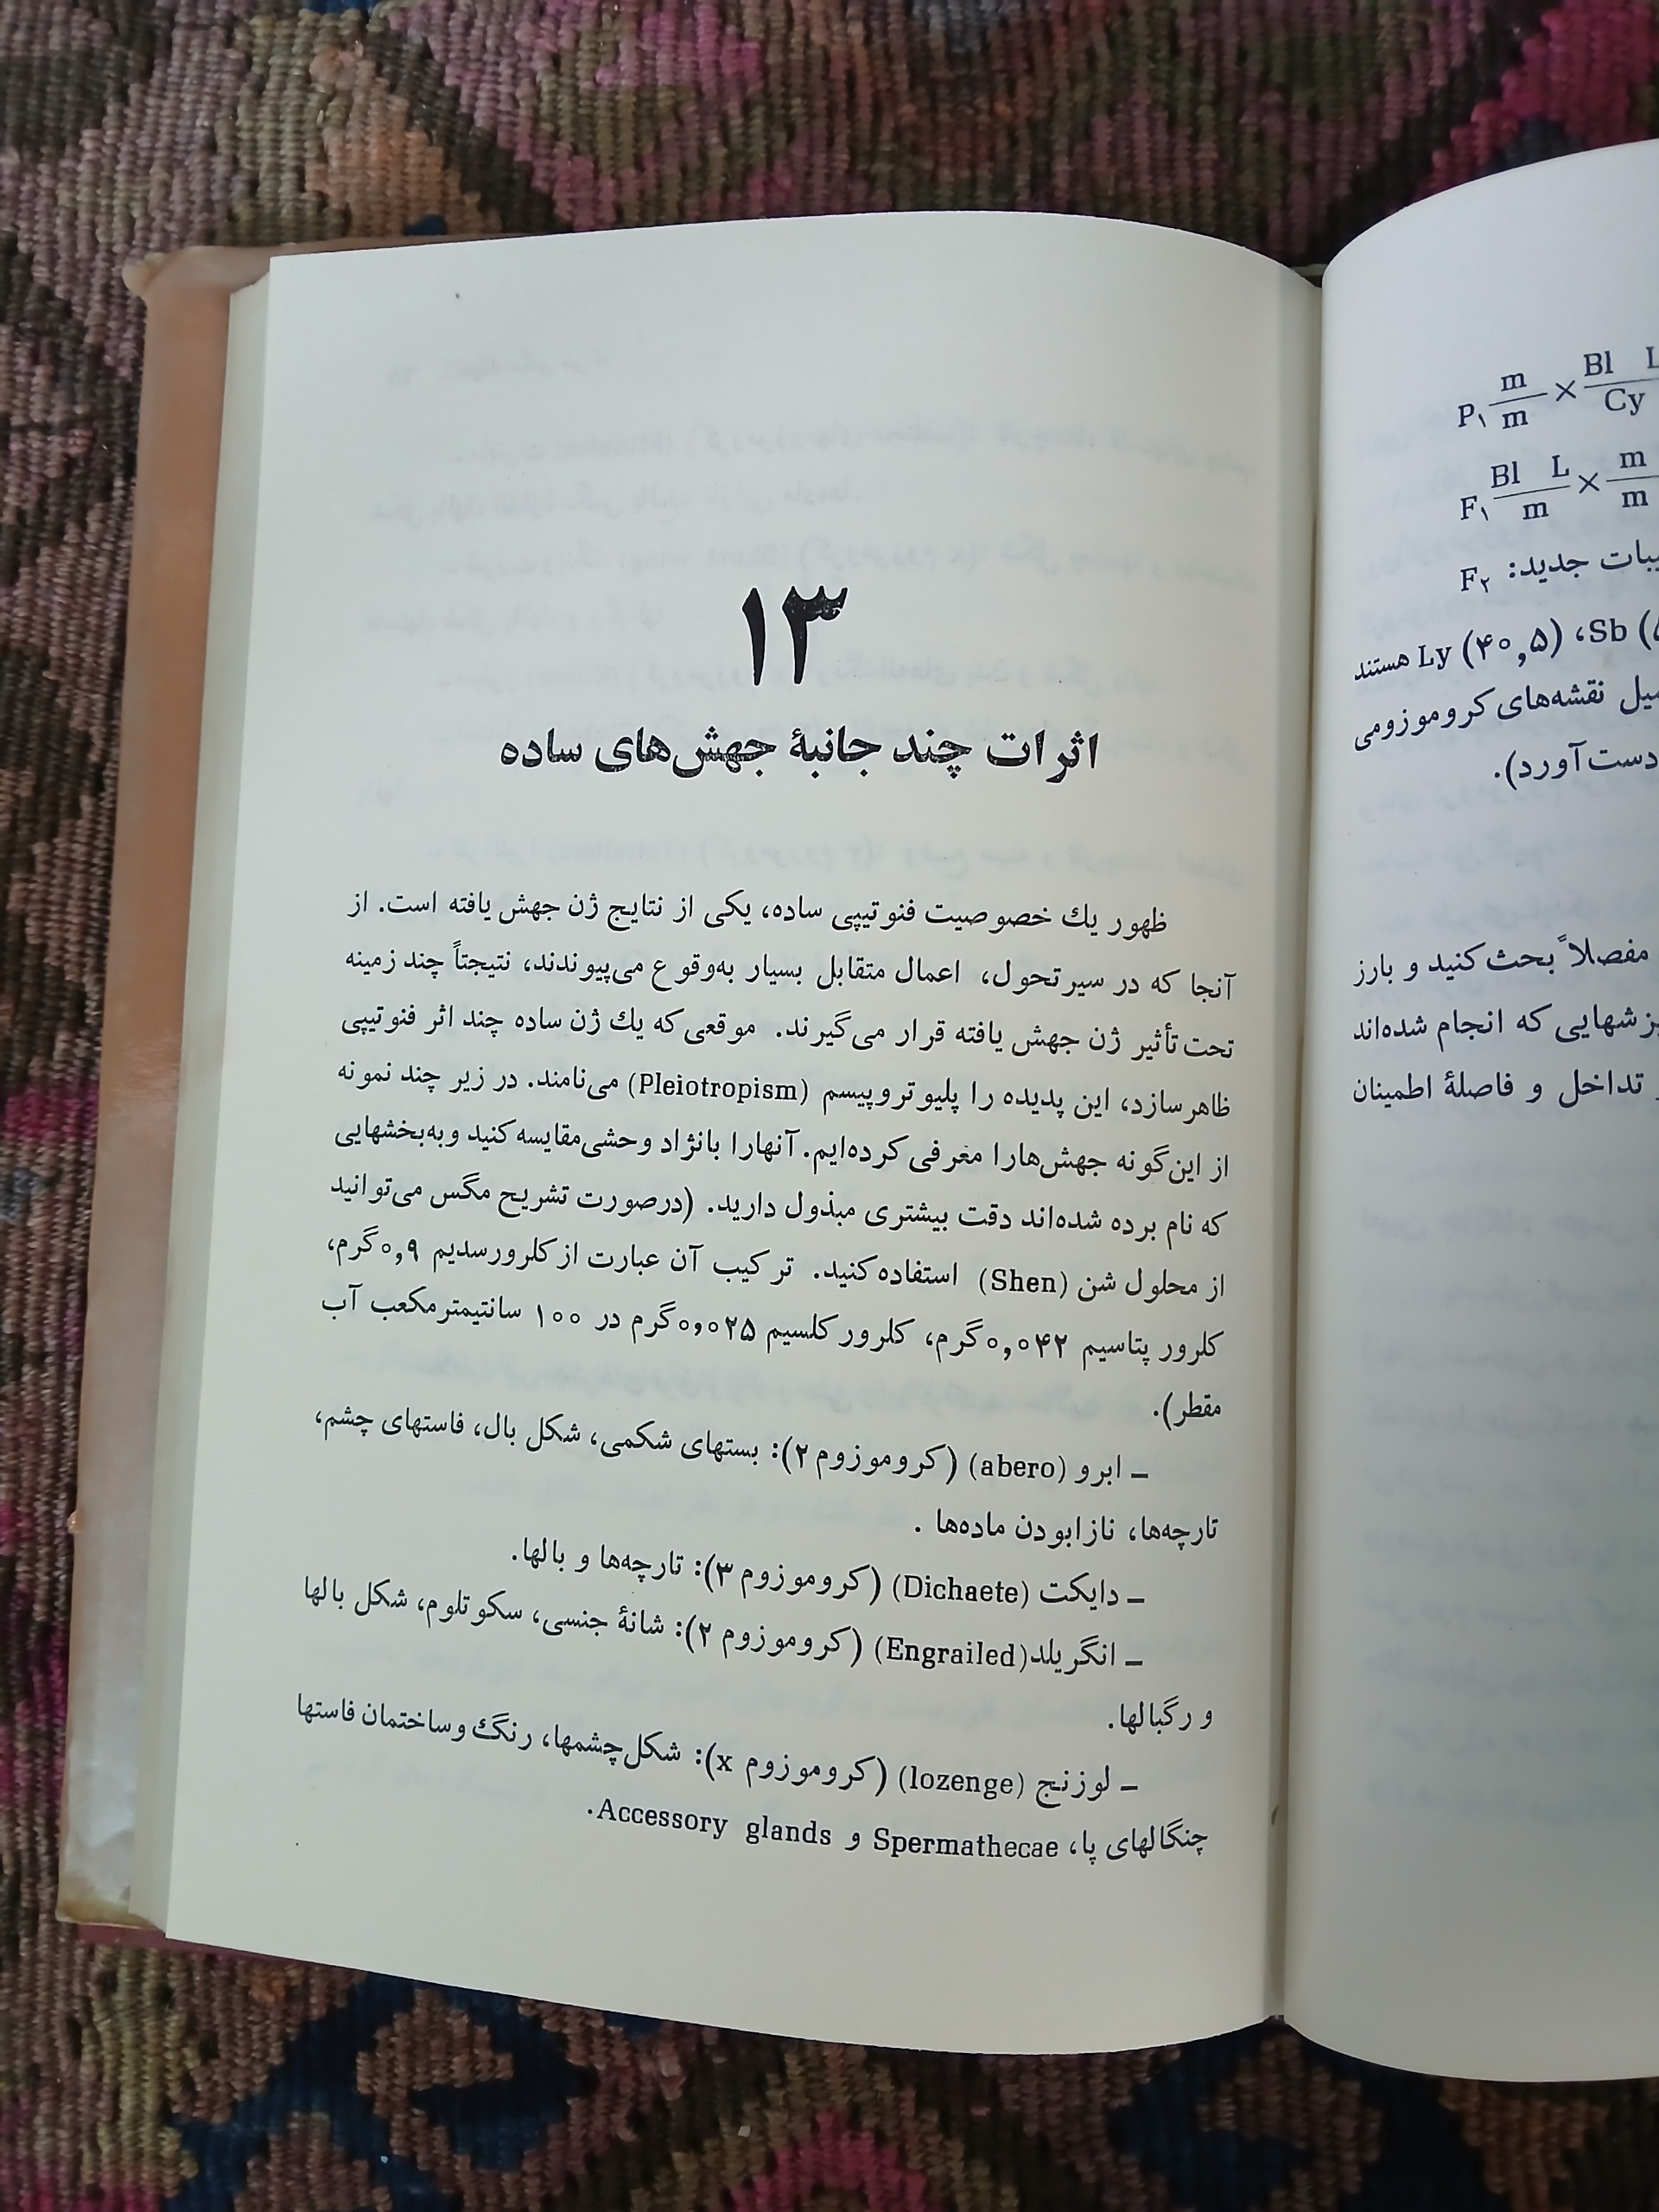 ۱۳
اثرات چند جانبهٔ جهش‌های ساده
ظهور یك خصوصیت فنوتیپی ساده، یکی از نتایج ژن جهش یافته است. از
آنجا که در سیرتحول، اعمال متقابل بسیار به‌وقوع می‌پیوندند، نتیجتاً چند زمینه
تحت تأثیر ژن جهش یافته قرار می‌گیرند. موقعی که یك ژن ساده چند اثر فنوتیپی
ظاهرسازد، این پدیده را پلیوتروپیسم (Pleiotropism) می‌نامند. در زیر چند نمونه
از این‌گونه جهش‌هارا معرفی کرده‌ایم. آنهارا بانژاد وحشی مقایسه کنید و به‌بخشهایی
که نام برده شده‌اند دقت بیشتری مبذول دارید. (درصورت تشریح مگس می‌توانید
از محلول شن (Shen) استفاده کنید. ترکیب آن عبارت از کلرورسدیم ۰٫۹ گرم،
کلرور پتاسیم ۰٫۰۴۲ گرم، کلرور کلسیم ۰٫۰۲۵ گرم در ۱۰۰ سانتیمترمکعب آب
مقطر).
– ابرو (abero) (کروموزوم ۲): بستهای شکمی، شکل بال، فاستهای چشم،
تارچه‌ها، نازابودن ماده‌ها .
– دایکت (Dichaete) (کروموزوم ۳): تارچه‌ها و بالها.
– انگریلد (Engrailed) (کروموزوم ۲): شانهٔ جنسی، سکوتلوم، شکل بالها
و رگبالها.
– لوزنج (lozenge) (کروموزوم x): شکل چشمها، رنگ وساختمان فاستها
چنگالهای پا، Spermathecae و Accessory glands.
P۱ m/m × Bl L/Cy
F۱ Bl L/m × m/m
جدید: F۲
Sb، (۴۰٫۵) Ly هستند
نقشه‌های کروموزومی
دست آورد).
مفصلاً بحث کنید و بارز
که انجام شده‌اند
تداخل و فاصلهٔ اطمینان